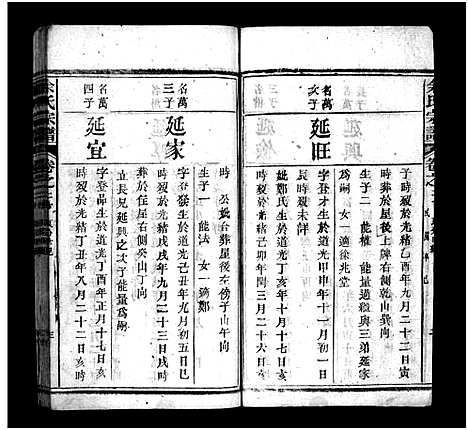 余氏宗譜
卷之三
子時歿於光緒乙酉年九月二十二日寅
時葬於屋後上牌右側乾山巽向
生子二 能權 能量過繼與三弟延家
為嗣 女一 適徐兆堂
名萬
次子
延旺
字登才生於道光甲申年二月十一日寅
時歿於光緒
妣鄭氏生於道光丁亥年十月十七日亥
時歿於光緒辛卯年閏三月二十六日亥
時 公妣合葬屋後左傍子山午向
名萬
三子
延家
字登發生於道光己丑年九月初五日巳
時歿於光緒戊戌年九月二十三日戌時
葬於住屋右側癸山丁向
生子一 能法 女一 適鄭
立長兄延興之次子能量為嗣
名萬
四子
延宜
字登品生於道光丁酉年正月十七日亥
時歿於光緒丁丑年八月二十二日亥
余氏宗譜
卷之三